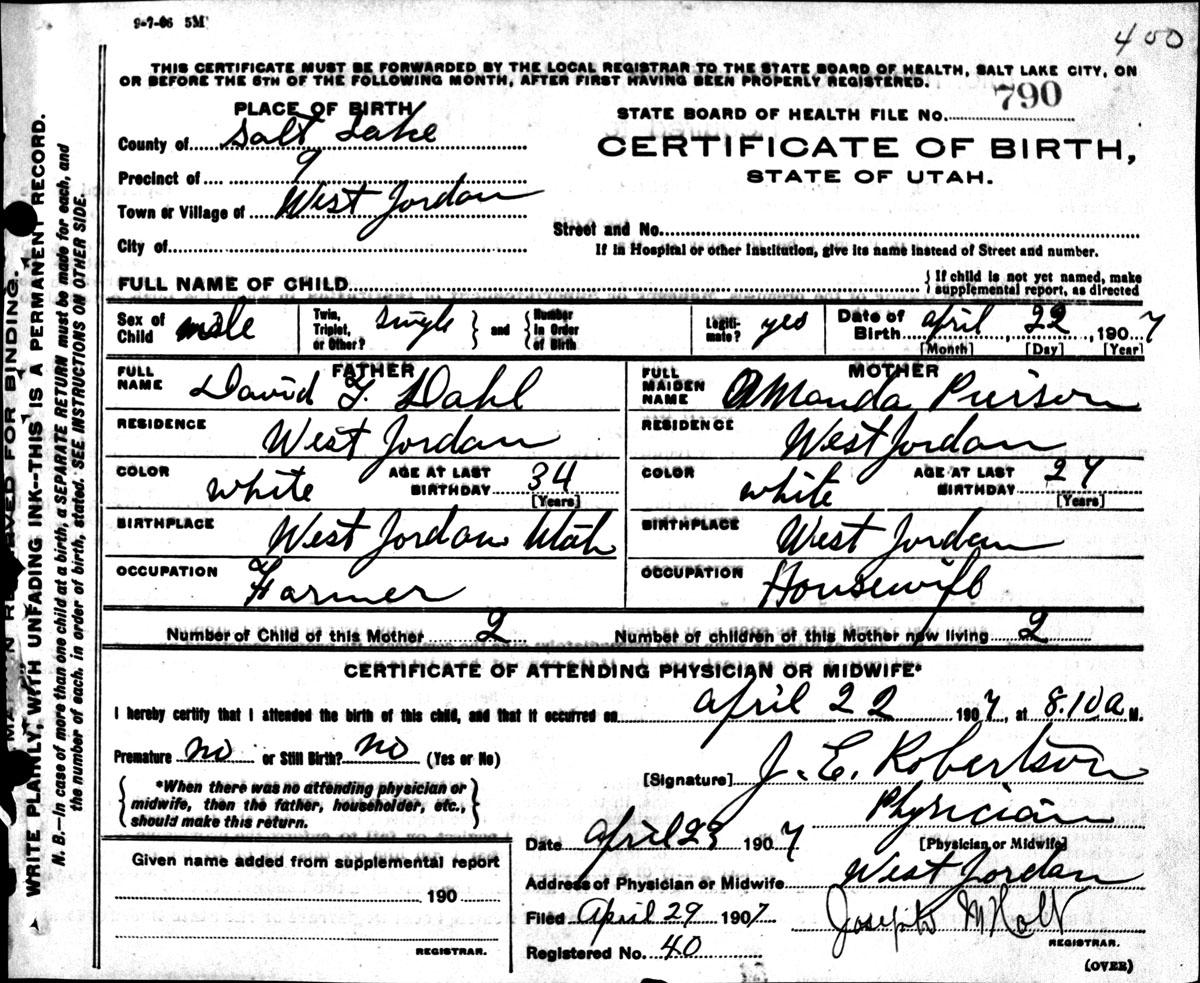 9-7-06 5M
400
THIS CERTIFICATE MUST BE FORWARDED BY THE LOCAL REGISTRAR TO THE STATE BOARD OF HEALTH, SALT LAKE CITY, ON
OR BEFORE THE 5TH OF THE FOLLOWING MONTH, AFTER FIRST HAVING BEEN PROPERLY REGISTERED.
PLACE OF BIRTH
STATE BOARD OF HEALTH FILE No. 790
County of Salt Lake
CERTIFICATE OF BIRTH,
Precinct of 9
STATE OF UTAH.
Town or Village of West Jordan
Street and No.
City of
If in Hospital or other Institution, give its name instead of Street and number.
FULL NAME OF CHILD
{ If child is not yet named, make
supplemental report, as directed
Sex of Child male Twin, Triplet, or Other? single } and { Number in Order of Birth Legitimate? yes Date of Birth April 22, 1907
[Month] [Day] [Year]
FATHER MOTHER
FULL NAME David F. Dahl FULL MAIDEN NAME Amanda Pierson
RESIDENCE West Jordan RESIDENCE West Jordan
COLOR white AGE AT LAST BIRTHDAY 34 [Years] COLOR white AGE AT LAST BIRTHDAY 27 [Years]
BIRTHPLACE West Jordan Utah BIRTHPLACE West Jordan
OCCUPATION Farmer OCCUPATION Housewife
Number of Child of this Mother 2 Number of children of this Mother now living 2
CERTIFICATE OF ATTENDING PHYSICIAN OR MIDWIFE*
I hereby certify that I attended the birth of this child, and that it occurred on April 22 1907, at 8.10 a M.
Premature no or Still Birth? no (Yes or No)
[Signature] J. E. Robertson
{ *When there was no attending physician or
midwife, then the father, householder, etc.,
should make this return. }
Physician
[Physician or Midwife]
Date April 23 1907
Given name added from supplemental report
Address of Physician or Midwife West Jordan
190
Filed April 29 1907 Joseph M Holt
REGISTRAR.
REGISTRAR.
Registered No. 40
(OVER)
RESERVED FOR BINDING.
WRITE PLAINLY, WITH UNFADING INK--THIS IS A PERMANENT RECORD.
N. B.—In case of more than one child at a birth, a SEPARATE RETURN must be made for each, and
the number of each, in order of birth, stated. SEE INSTRUCTIONS ON OTHER SIDE.